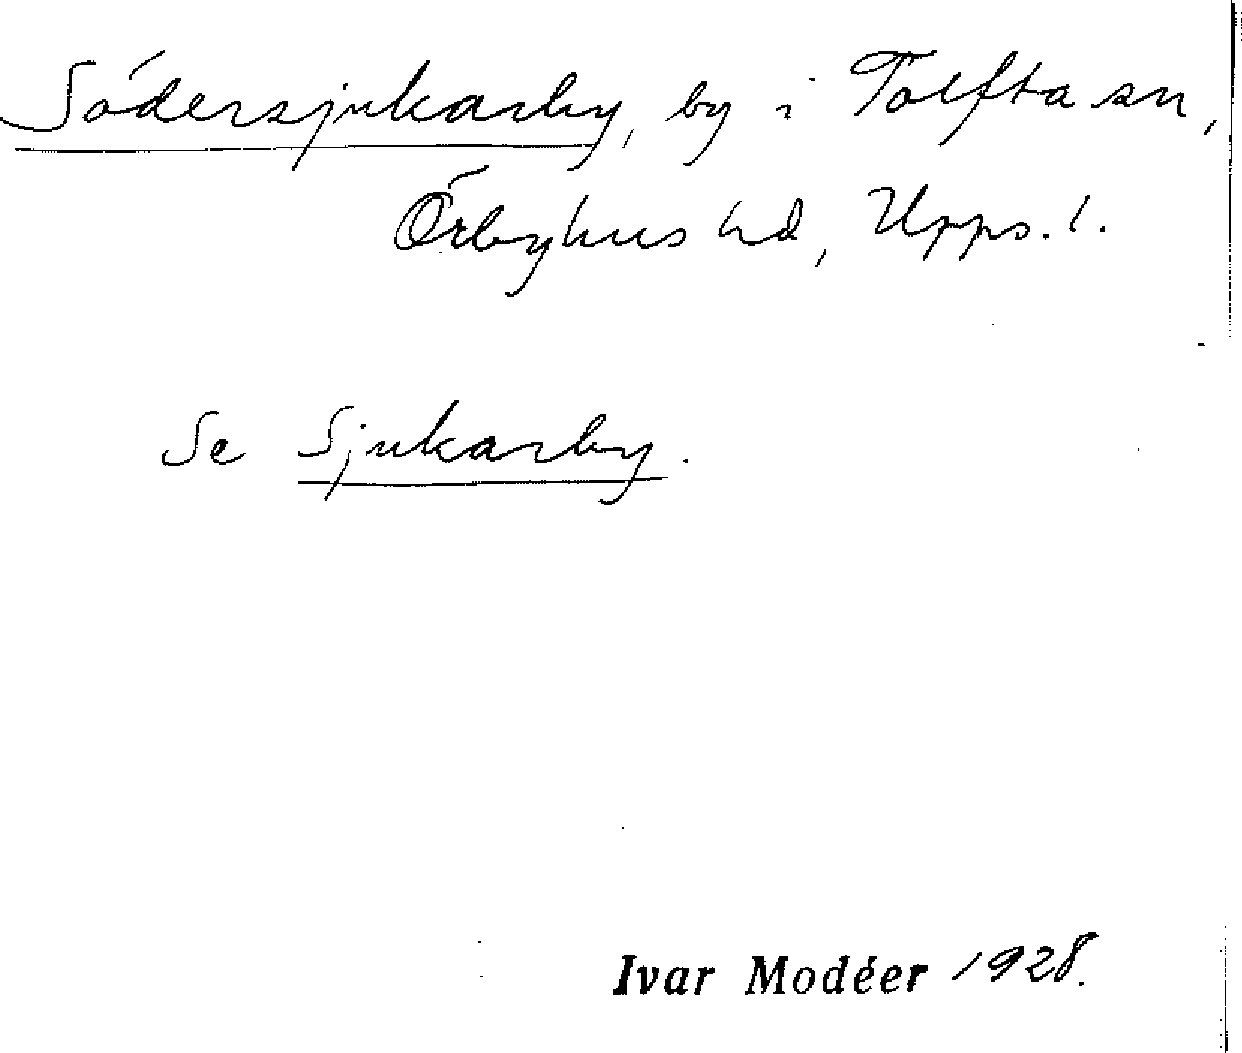 Södersjukarby, by i Tolfta sn,
Örbyhus hd, Upps. l.
Se Sjukarby.
Ivar Modéer 1928.